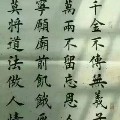 千金不傳無義子
萬兩不留忘恩人
寧願廟前飢餓死
莫將道法做人情